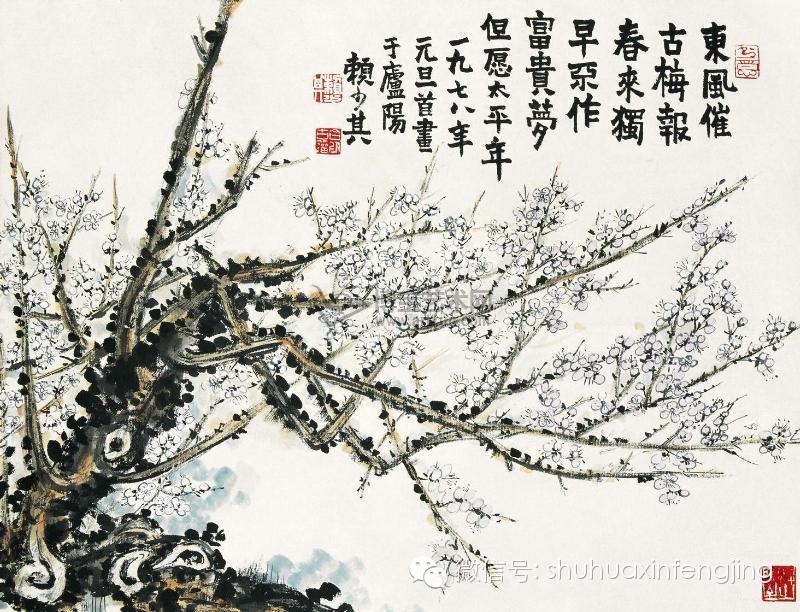 東風催
古梅報
春來獨
早作
富貴夢
但愿太平年
一九七八年
元旦首畫
于廬陽
賴少其
微信号: shuhuaxinfengjing